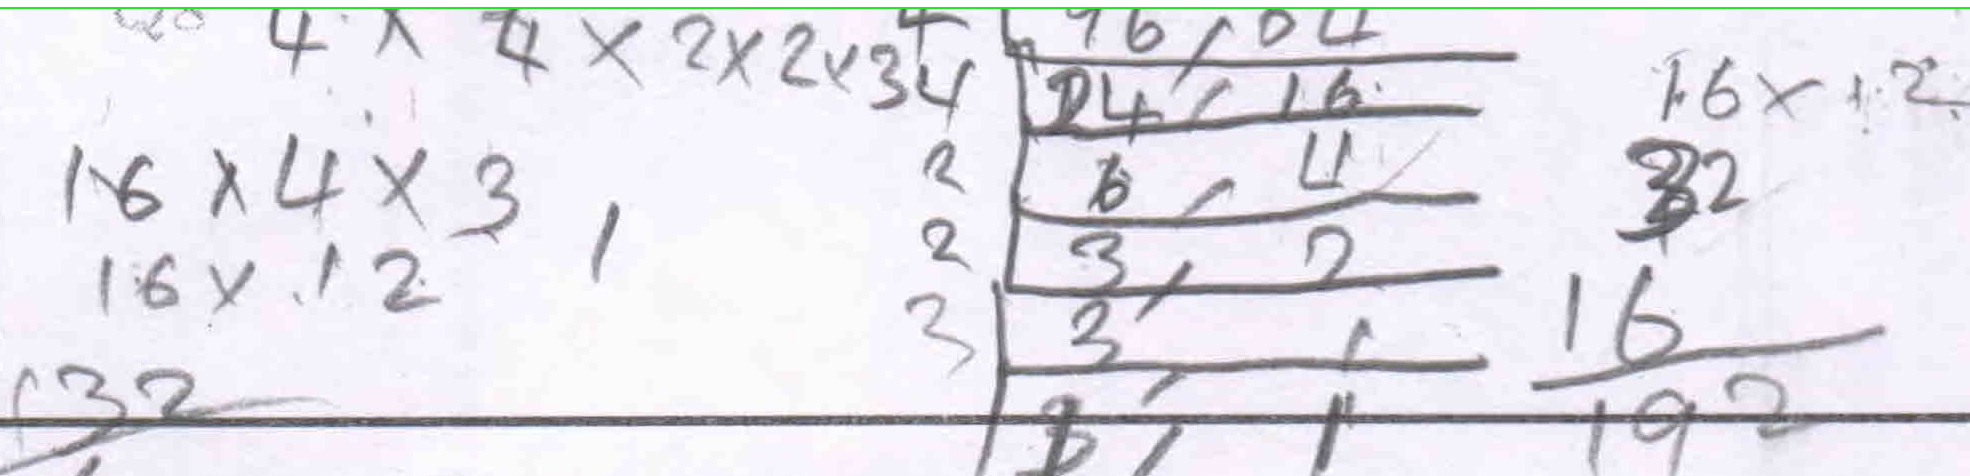 4 × 4 × 2×2×3
16 × 4 × 3
16 × 12
132
4 96, 64
4 24, 16
2 6, 4
2 3, 2
3 3, 1
1, 1
16 × 12
32
16
192